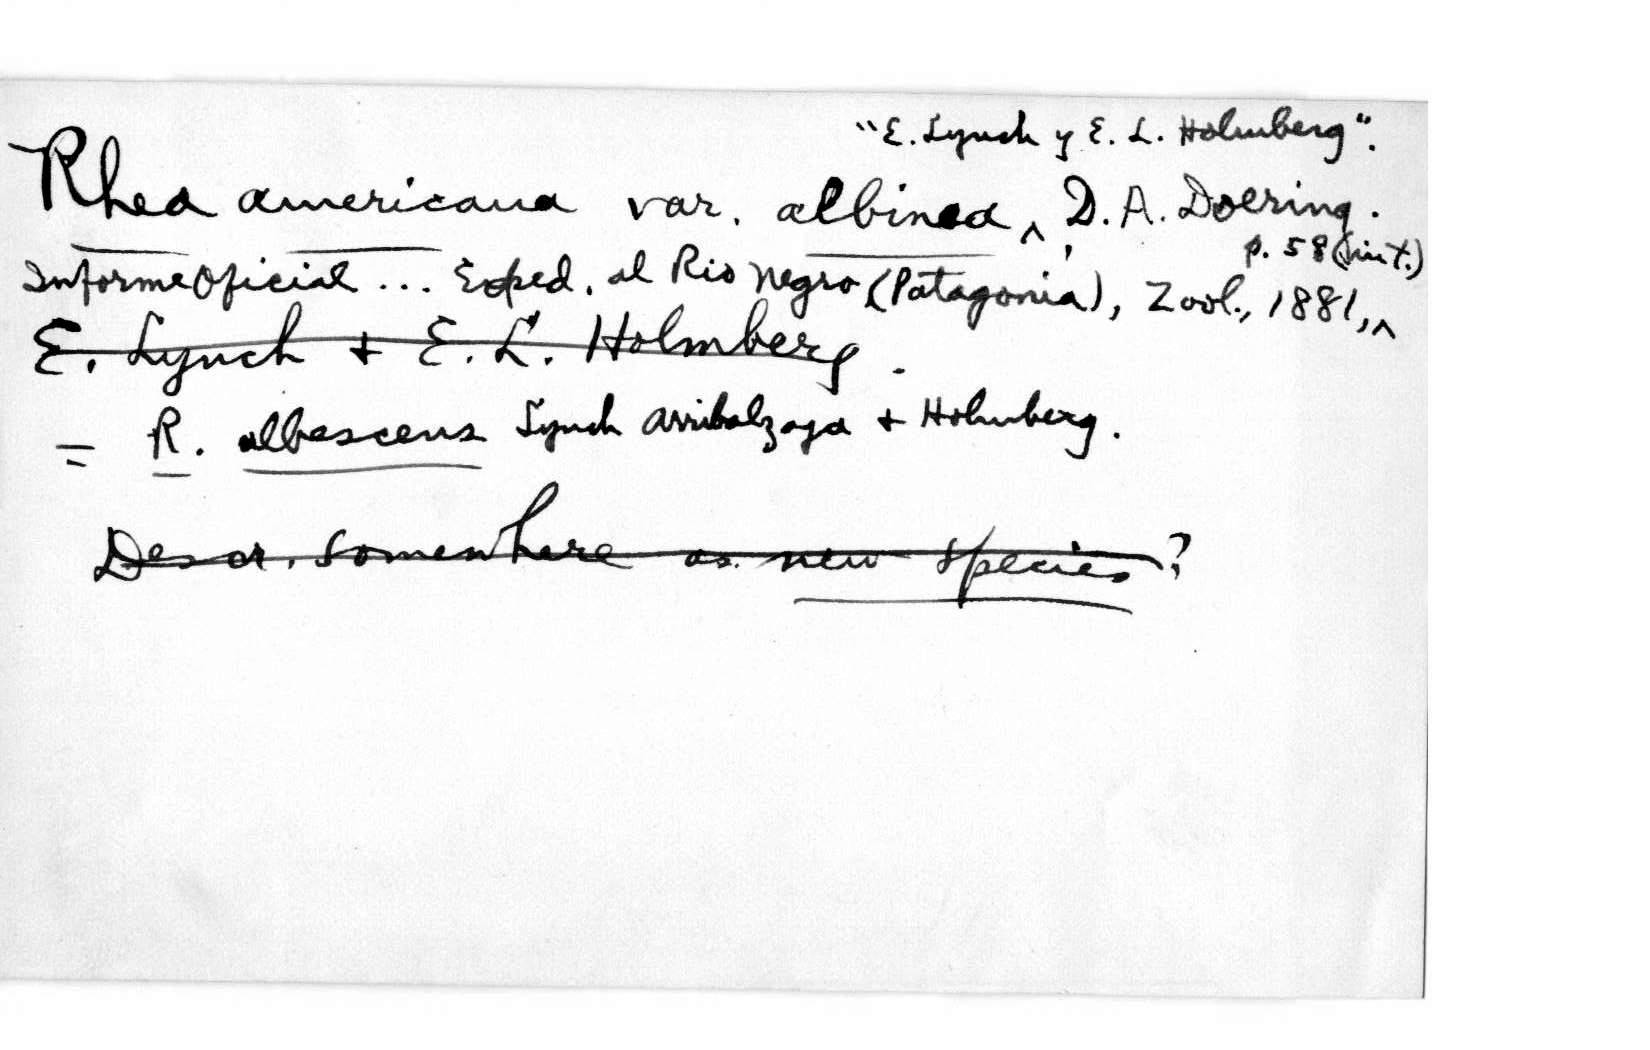 "E. Lynch y E. L. Holmberg".
Rhea americana var. albinea ^, D. A. Doering.
p. 58 (in t.)
Informe Oficial ... Exped. al Rio Negro (Patagonia), Zool., 1881, ^
E. Lynch + E. L. Holmberg.
= R. albescens Lynch Arribalzaga + Holmberg.
Descr. somewhere as new species?